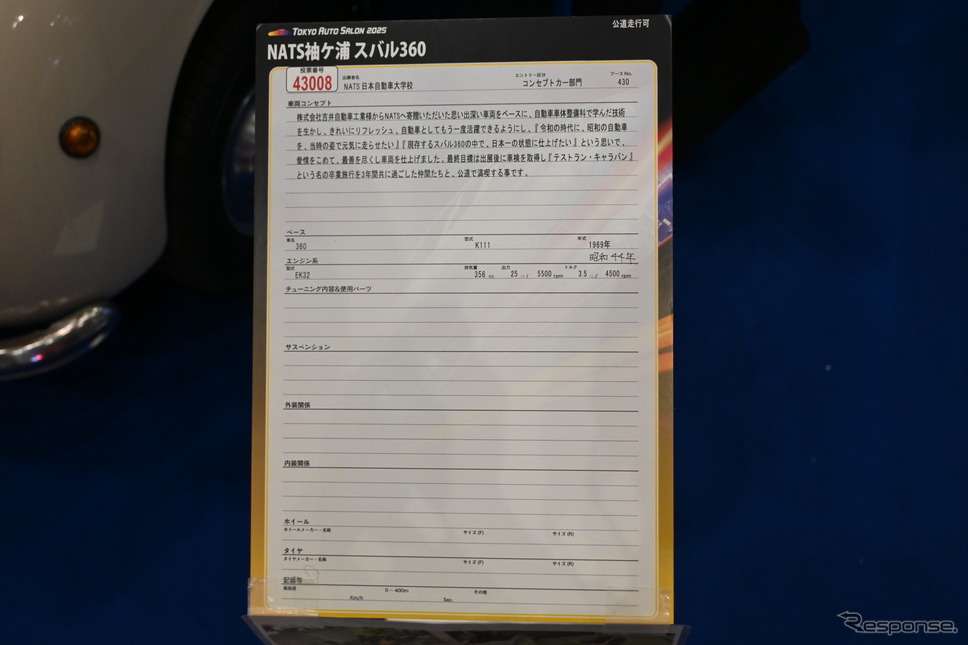 TOKYO AUTO SALON 2025
公道走行可
NATS袖ケ浦 スバル360
投票番号
43008
出展者名
NATS 日本自動車大学校
エントリー区分
コンセプトカー部門
ブースNo.
430
車両コンセプト
株式会社吉井自動車工業様からNATSへ寄贈いただいた思い出深い車両をベースに、自動車車体整備科で学んだ技術
を生かし、きれいにリフレッシュ、自動車としてもう一度活躍できるようにし、『令和の時代に、昭和の自動車
を、当時の姿で元気に走らせたい』『現存するスバル360の中で、日本一の状態に仕上げたい』という思いで、
愛情をこめて、最善を尽くし車両を仕上げました。最終目標は出展後に車検を取得し『テストラン・キャラバン』
という名の卒業旅行を3年間共に過ごした仲間たちと、公道で満喫する事です。
ベース
車名 360 型式 K111 年式 1969年
昭和44年
エンジン系
型式 EK32 排気量 356 cc 出力 25 / 5500 rpm トルク 3.5 / 4500 rpm
チューニング内容&使用パーツ
サスペンション
外装関係
内装関係
ホイール
ホイールメーカー・名称 サイズ(F) サイズ(R)
タイヤ
タイヤメーカー・名称 サイズ(F) サイズ(R)
記録等
最高速 Km/h 0-400m Sec. その他
Response.